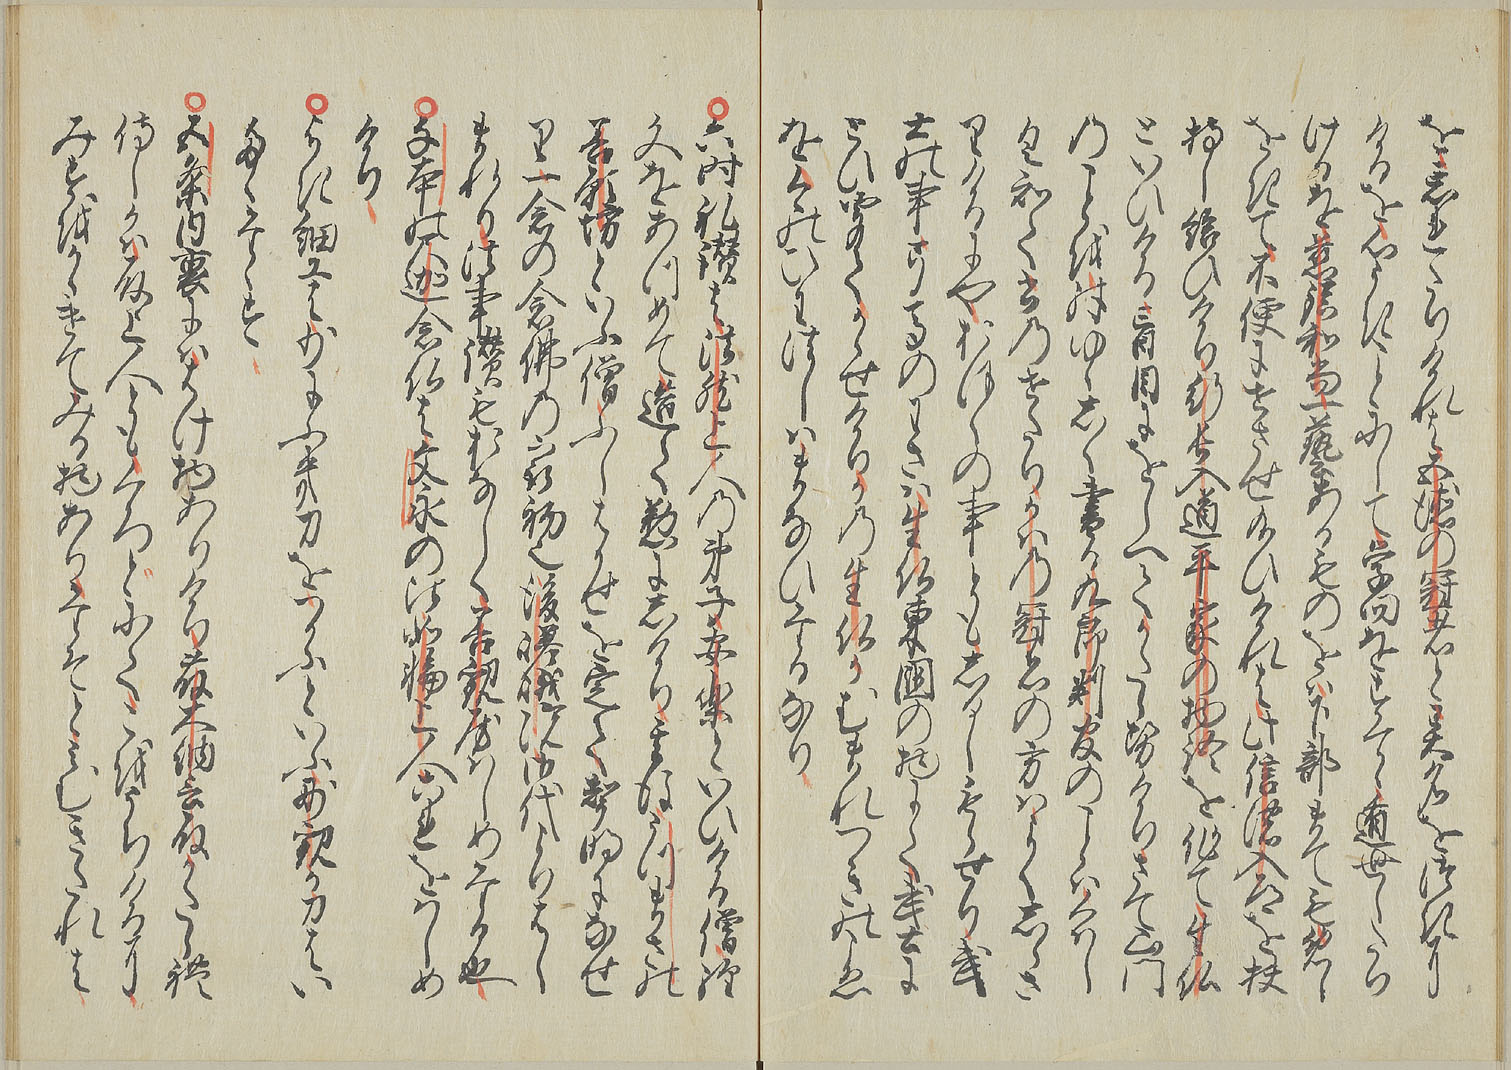 を忘れたりけれは五徳の冠者と異名をつきにけ
るを心うき事にして学問をすてゝ遁世したり
けるを慈鎮和尚一藝あるものをは下部まてもめし
をきて不便にせさせ給ひけれは此信濃入道を扶
持し給ひけり行長入道平家の物語を作て生仏
といひける盲目にをしへてかたらせけりさて山門
のことをことにゆゝしく書り九郎判官のことはくはし
く知て書のせたり蒲の冠者の方はよくしらさ
りけるにやおほくの事ともをしるしもらせり武
士の事弓馬のわさは生仏東国のものにて武士に
とひ聞てかゝせけりかの生仏かむまれつきのこゑ
を今のひわ法しはまなひたるなり
六時礼讃は法然上人の弟子安楽といひける僧経
文をあつめて造てつとめにしけり其後うつまさの
善観坊といふ僧ふしはかせを定て声明になせ
り一念の念佛の最初也後嵯峨院の御代よりはし
まれり法事讃も同しく善観房はしめたる也
千本の尺迦念仏は文永の比如輪上人これをはしめ
けり
よき細工は少にふき刀をつかふといふ妙観か刀はい
たくたゝす
五条内裏にははけ物ありけり藤大納言殿かたられ
侍しは殿上人とも黒戸にて碁をうちけるに
みすをかゝけてみる物ありたそとみむきたれは